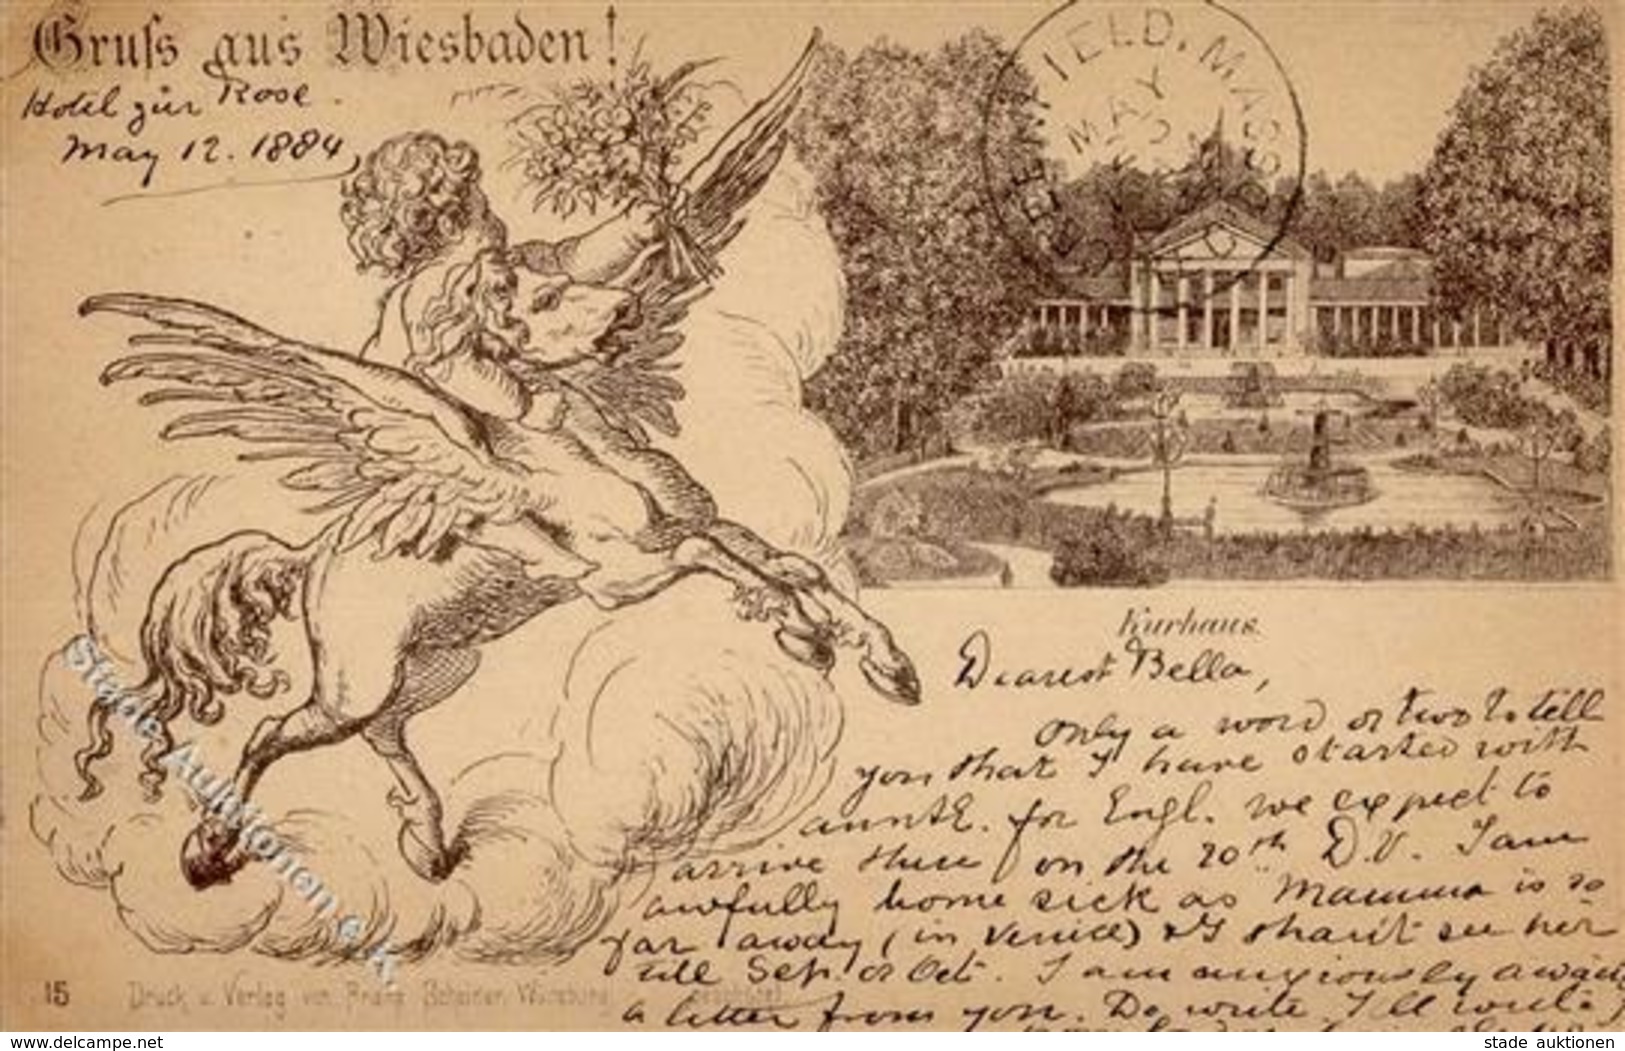 Gruss aus Wiesbaden!
Hotel zur Rose.
May 12. 1884,
FIELD, MASS
MAY
Kurhaus.
Dearest Bella,
Only a word or two to tell
you that I have started with
aunt E. for Engl. we expect to
arrive there on the 20th D.V. I am
awfully home sick as Mamma is so
far away (in Venice) & I shan't see her
till Sep. or Oct. I am anxiously
a letter from you. Do write. I'll write
15 Druck u. Verlag von Franz Scheiner, Würzburg.
Stade Auktionen
www.delcampe.net
stade auktionen